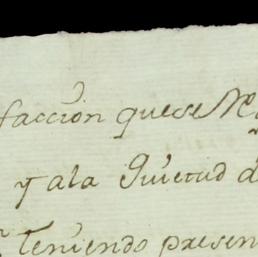 faccion quese
y ala Quietud d
teniendo presen